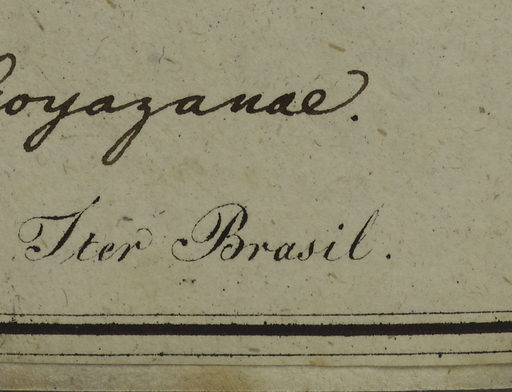 Goyazanae.
Iter Brasil.